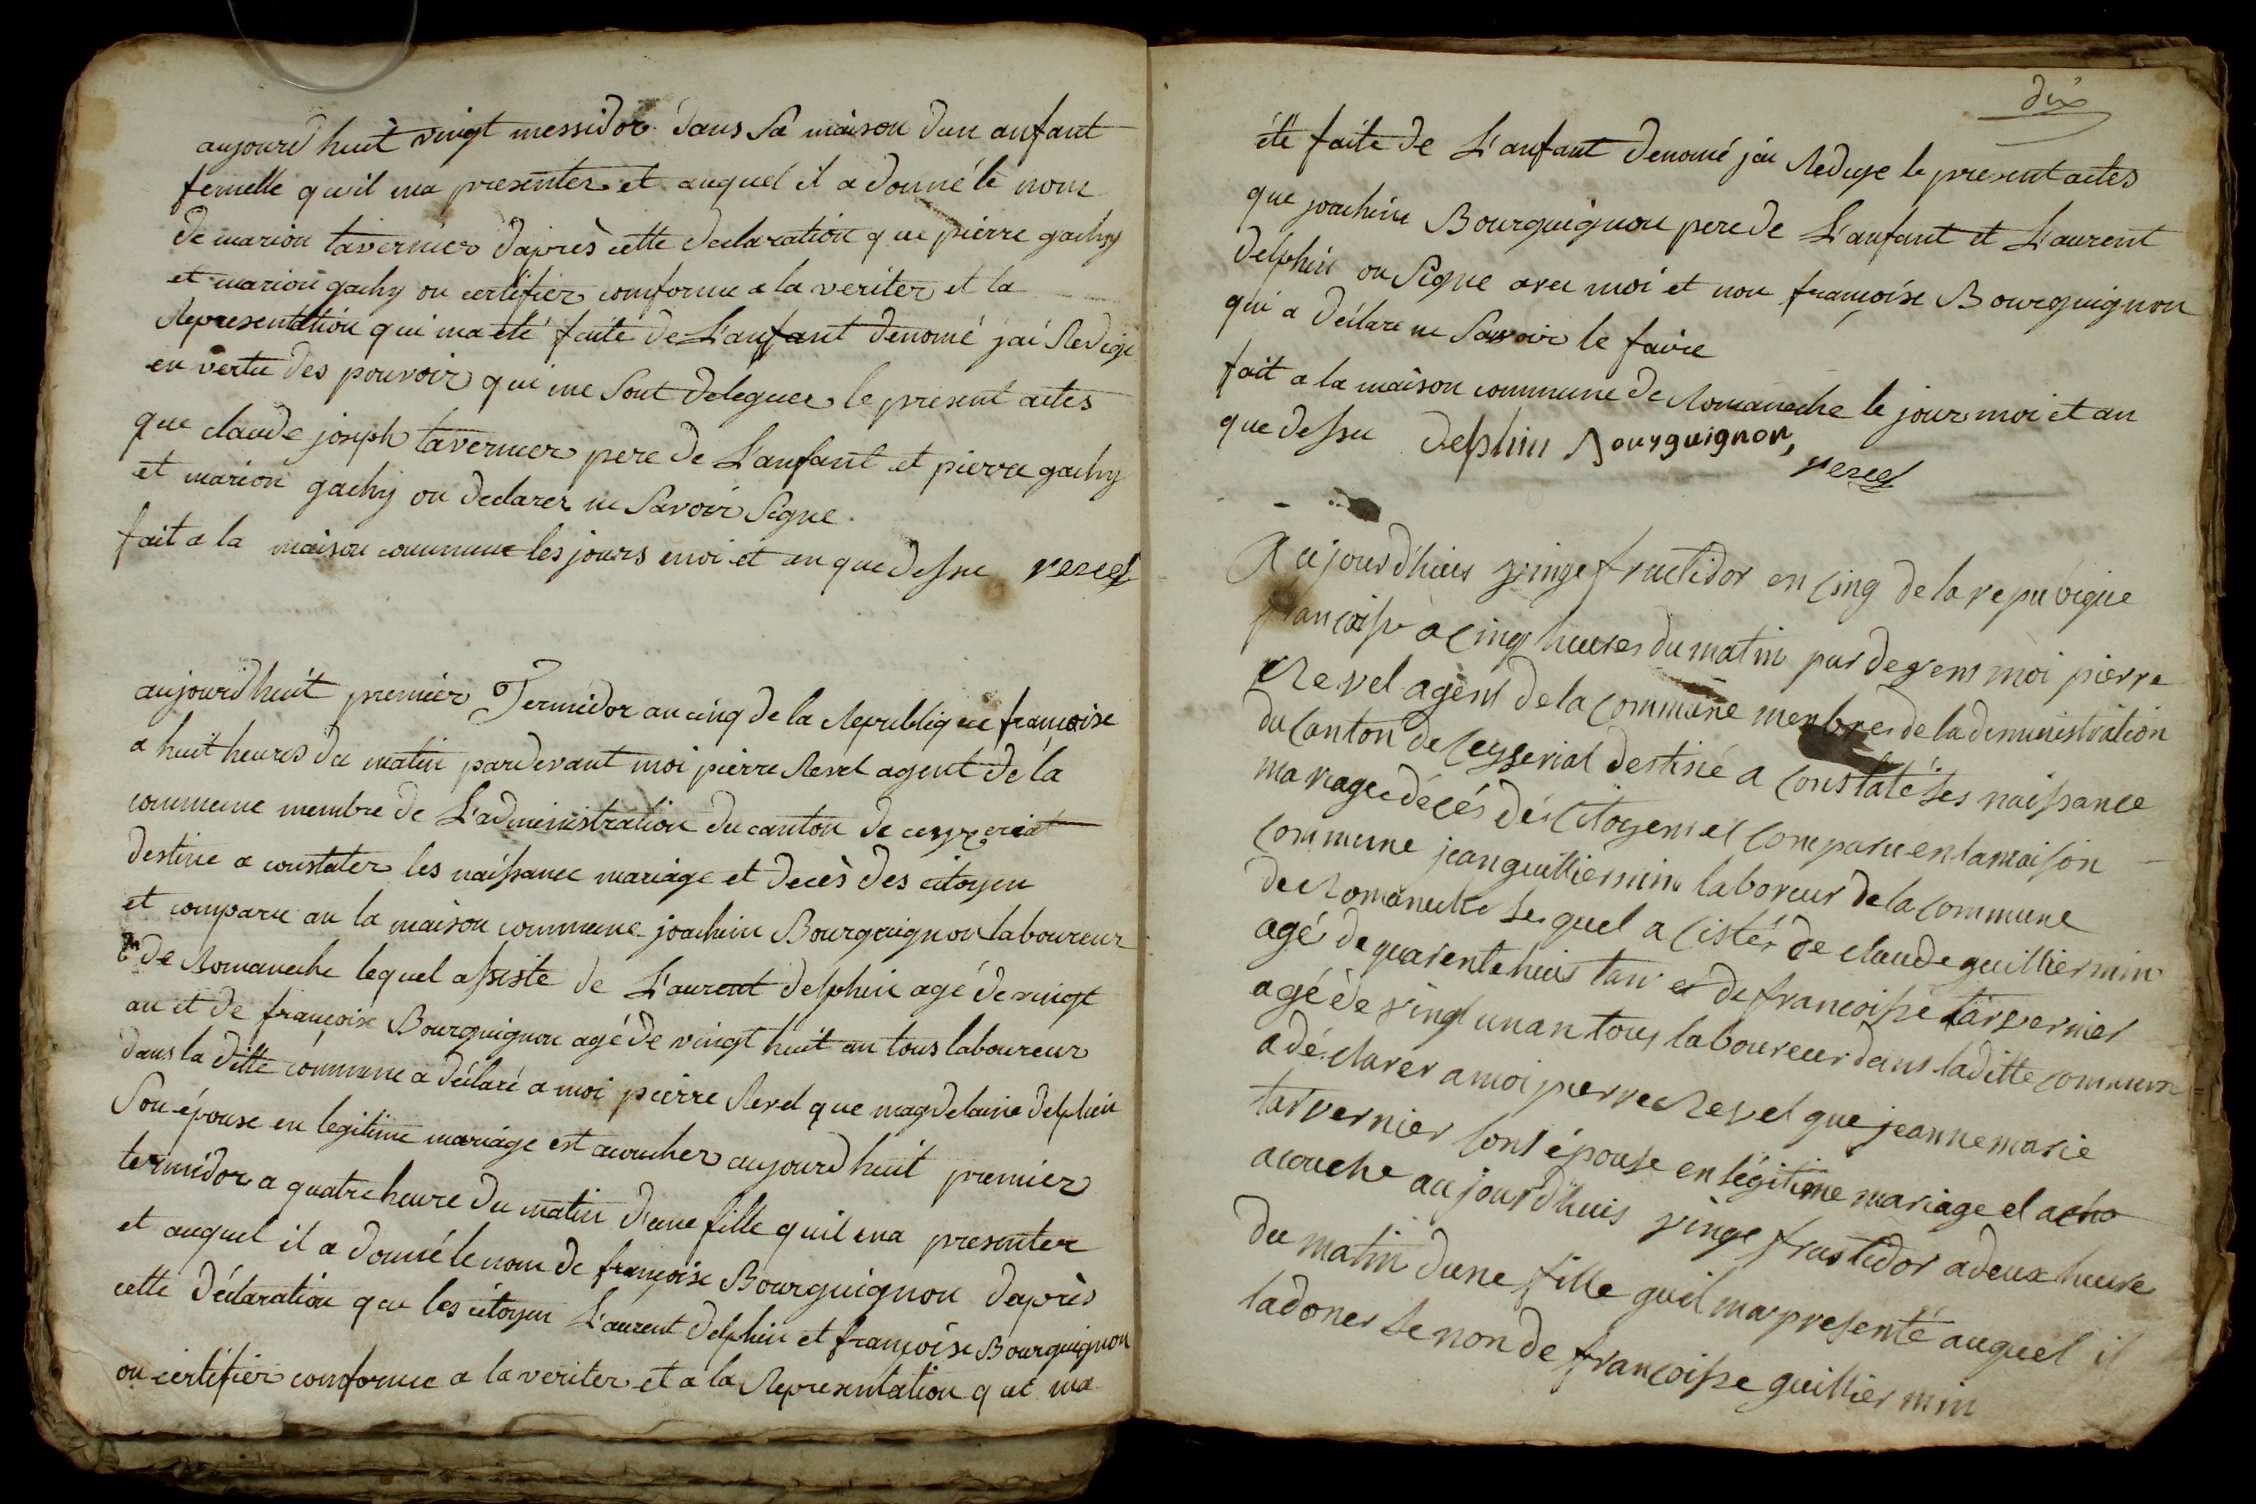 aujourd huit vingt messidor dans sa maison dun anfant
femelle quil ma presenter et auquel il a donné le nom
de marion tavernier daprès cette declaration que pierre gachy
et marion gachy on certifier comforme a la veriter et la
Representation qui ma été faite de L'anfant denomé jai Redige
en vertu des pouvoir qui me sont deleguer le present actes
que claude joseph tavernier pere de Lanfant et pierre gachy
et marion gachy on declarer ne savoir signe
fait a la maison commune les jours moi et an que dessu revel
aujourdhuit premier Termidor an cinq de la Republique françoise
a huit heures du matin pardevant moi pierre Revel agent de la
commune membre de L'administration du canton de ceyzeriat
destine a constater les naissance mariage et decès des citoyen
et comparu an la maison commune joachim Bourguignon laboureur
de Romaneche lequel assiste de L'aurent delphin agé de vingt
an et de françoise Bourguignon agé de vingt huit an tous laboureur
dans la ditte commune a déclaré a moi pierre Revel que magdelaine delphin
son épouse en legitime mariage est acoucher aujourd huit premier
termidor a quatre heure du matin d'une fille quil ma presenter
et auquel il a donné le nom de françoise Bourguignon daprès
cette déclaration que les citoyen L'aurent delphin et françoise Bourguignon
on certifier comforme a la veriter et a la Representation qui ma
dix
été faite de L'anfant denomé jai Redige le present actes
que joachim Bourguignon pere de L'anfant et L'aurent
delphin on signe avec moi et non françoise Bourguignon
qui a déclare ne savoir le faire
fait a la maison commune de Romaneche le jour moi et an
que dessu delphin Bourguignon, revel
Aujourdhuis vinge fructidor en cinq de la repubique
françoisse a cinq heures du matin par devens moi pierre
Revel agent de la commune menbre de ladministration
du canton de ceyseriat destiné a constaté les naissance
mariage décés dés citoyens et comparu en la maison
commune jean guilliermin laboreur de la commune
de Romaneche lequel a cistér de claude guilliermin
agé de quarente huis tan et de francoisse tarvernier
agé de vingt un an tous laboureur dans laditte commune
a déclarer a moi pierre Revel que jeanne marie
tarvernier sont épouse en légitime mariage et acho
acouche aujourdhuis vinge frustidor a deux heure
du matin dune fille quil ma presenté auquel il
ladoner le non de françoisse guilliermin